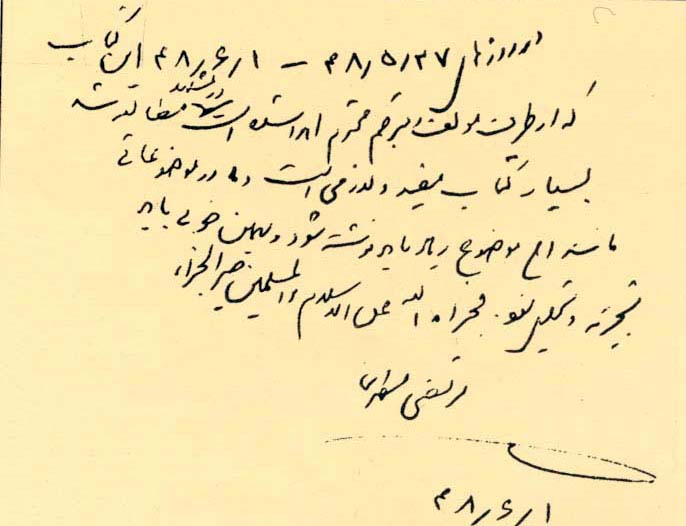 در روزهای ۴۸/۵/۲۷ – ۴۸/۶/۱ این کتاب
که از طرف مؤلف و مترجم محترم اهدا شده است مطالعه شد
بسیار کتاب مفید و لازمی است و در موضوعاتی
مانند این موضوع زیاد باید نوشته شود و بهمین خوبی باید
تجزیه و تحلیل شود. فجزاه الله عن الاسلام و المسلمین خیر الجزاء
مرتضی مطهری
۴۸/۶/۱